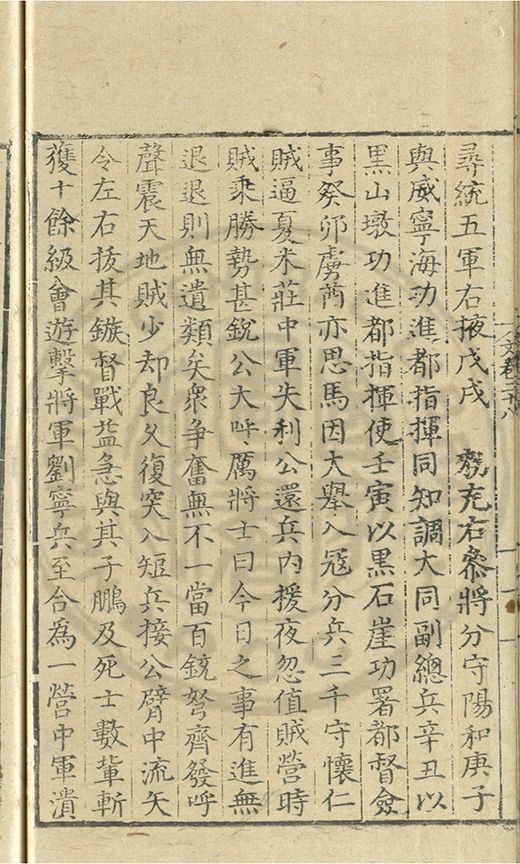 尋統五軍右掖戊戌 勑充右叅將分守陽和庚子
與威寧海功進都指揮同知調大同副總兵辛丑以
黒山墩功進都指揮使壬寅以黒石崖功署都督僉
事癸卯虜酋亦思馬因大舉入冦分兵三千守懷仁
賊逼夏米莊中軍失利公還兵内援夜忽值賊營時
賊乘勝勢甚銳公大呼厲將士曰今日之事有進無
退退則無遺類矣衆争奮無不一當百銃弩齊發呼
聲震天地賊少却良久復突入短兵接公臂中流矢
令左右拔其鏃督戰益急與其子鵬及死士數軰斬
獲十餘級會遊擊將軍劉寧兵至合為一營中軍潰